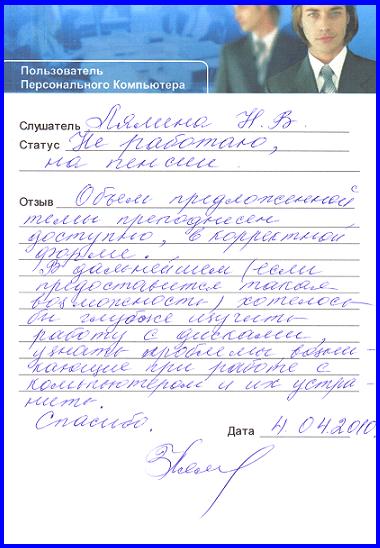 Пользователь
Персонального Компьютера
Слушатель Лялина Н.В.
Статус Не работаю,
на пенсии.
Отзыв Объем предложенной
темы преподнесен
доступно, в корректной
форме.
В дальнейшем (если
предоставится такая
возможность) хотелось
бы глубже изучить
работу с дисками,
узнать проблемы возни-
кающие при работе с
компьютером и их устра-
нить.
Спасибо.
Дата 4.04.2010